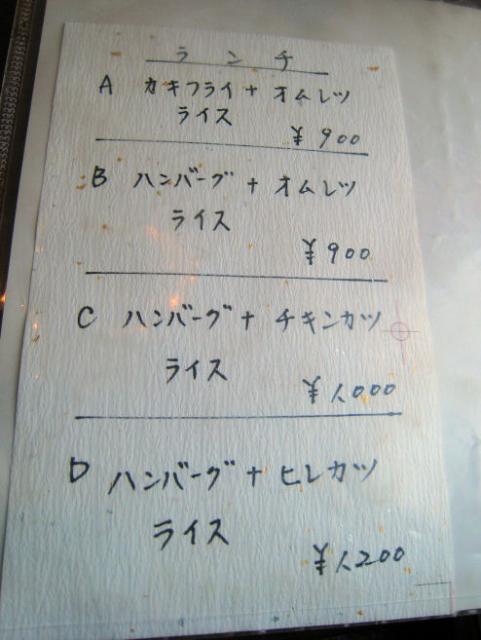 ランチ
A カキフライ+オムレツ
ライス
¥900
B ハンバーグ+オムレツ
ライス
¥900
C ハンバーグ+チキンカツ
ライス
¥1,000
D ハンバーグ+ヒレカツ
ライス
¥1,200